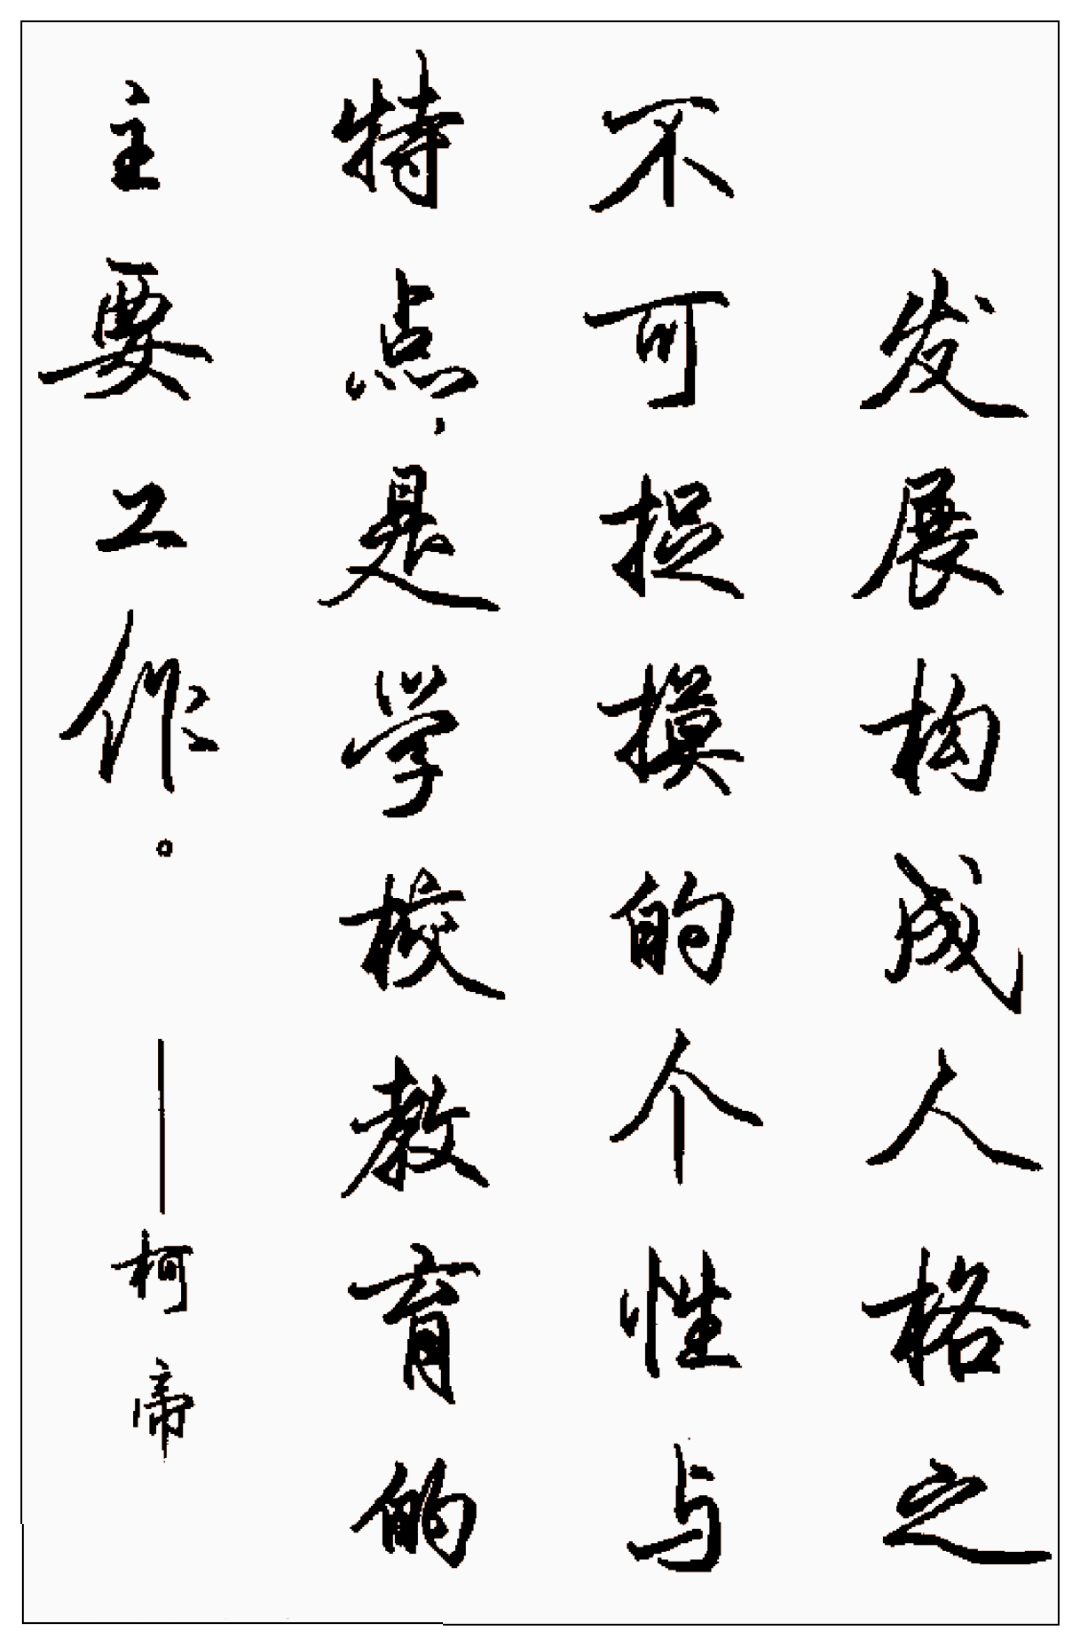 发展构成人格之
不可捉摸的个性与
特点，是学校教育的
主要工作。——柯帝